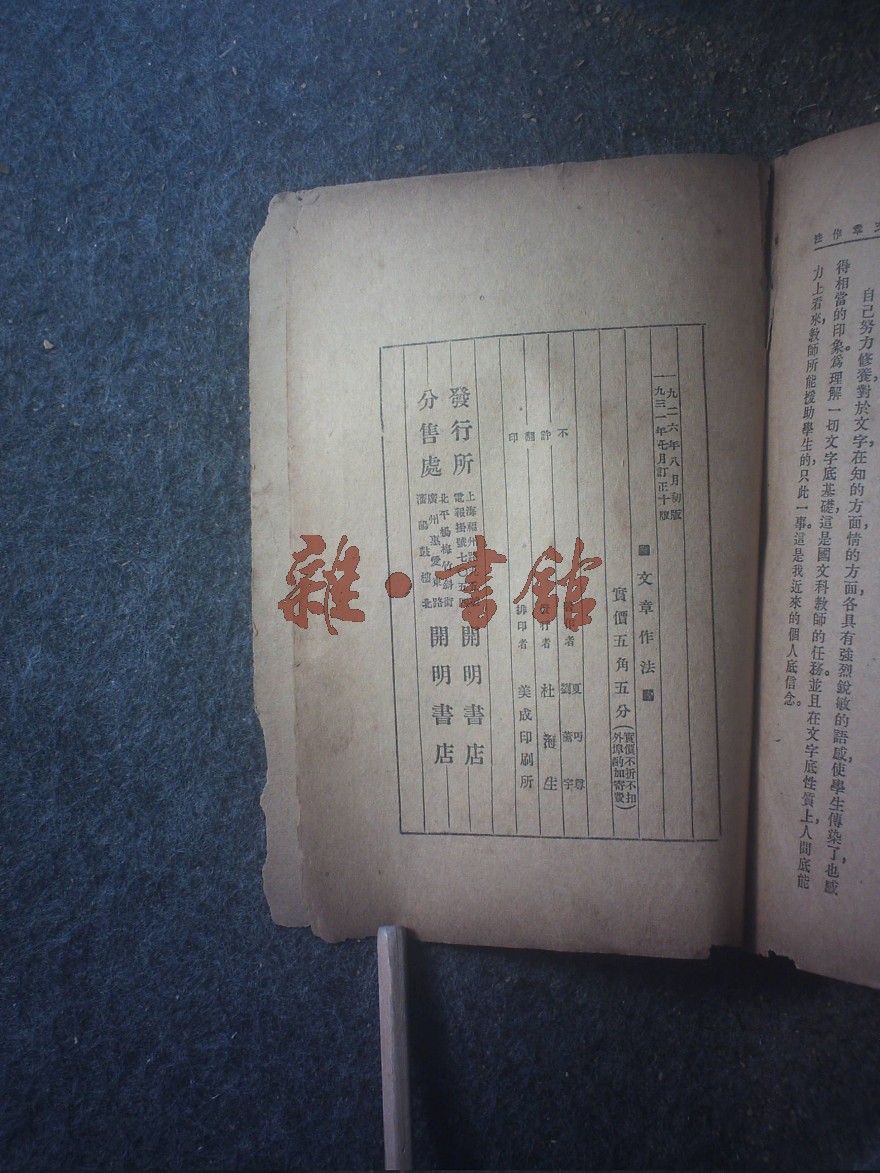 文章作法
自己努力修養,對於文字在知的方面,情的方面,各具有強烈銳敏的語感,使學生傳染了,也感
得相當的印象,爲理解一切文字底基礎,這是國文科教師的任務。並且在文字底性質上,人間底能
力上看來,教師所能援助學生的,只此一事。這是我近來的個人底信念。
一九二六年八月初版
一九三一年七月訂正十版
文章作法
實價五角五分
(實價不折不扣
外埠酌加寄費)
不許翻印
夏丏尊
劉薰宇
杜海生
排印者 美成印刷所
發行所
上海福州路
電報掛號七〇五四
開明書店
分售處
北平楊梅竹斜街
廣州惠愛東路
瀋陽鼓樓北
開明書店
雜·書館